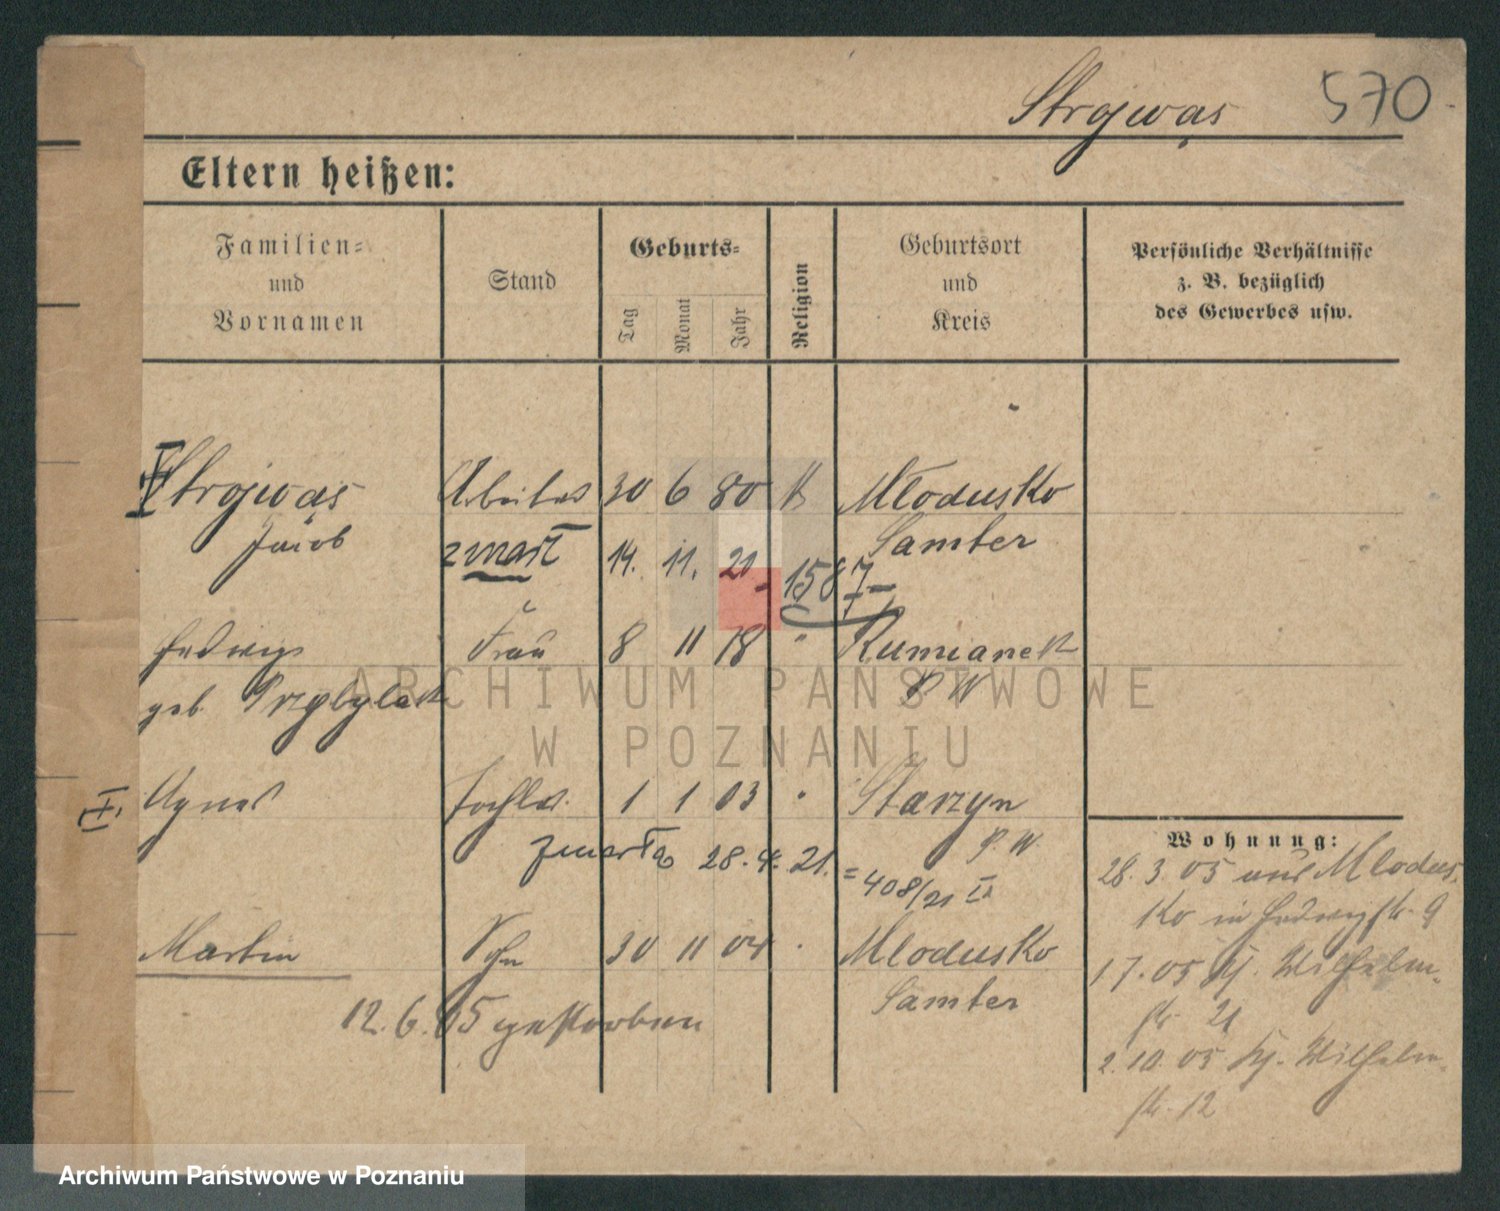 Strojwąs 570
Eltern heißen:
Familien- und Vornamen
Stand
Geburts-
Tag Monat Jahr
Religion
Geburtsort und Kreis
Persönliche Verhältnisse z. B. bezüglich des Gewerbes usw.
Strojwąs Arbeiter 30 6 80 k Mlodusko
Jacob Samter
zmarł 14. 11. 21 - 1587
Hedwig Frau 8 11 78 " Rumianek
geb. Przybylak P W
II. Agnes Tochter 1 1 03 " Starzyn
P. W.
zmarła 28. 4. 21. = 408/21 II
Martin Sohn 30 11 04 " Mlodusko
Samter
12. 6. 05 gestorben
Wohnung:
28. 3. 05 aus Mlodus
ko in Hedwigstr. 9
1 7. 05 Kj. Wilhelm-
str 21
2. 10. 05 Kj. Wilhelm-
str. 12
ARCHIWUM PAŃSTWOWE
W POZNANIU
Archiwum Państwowe w Poznaniu